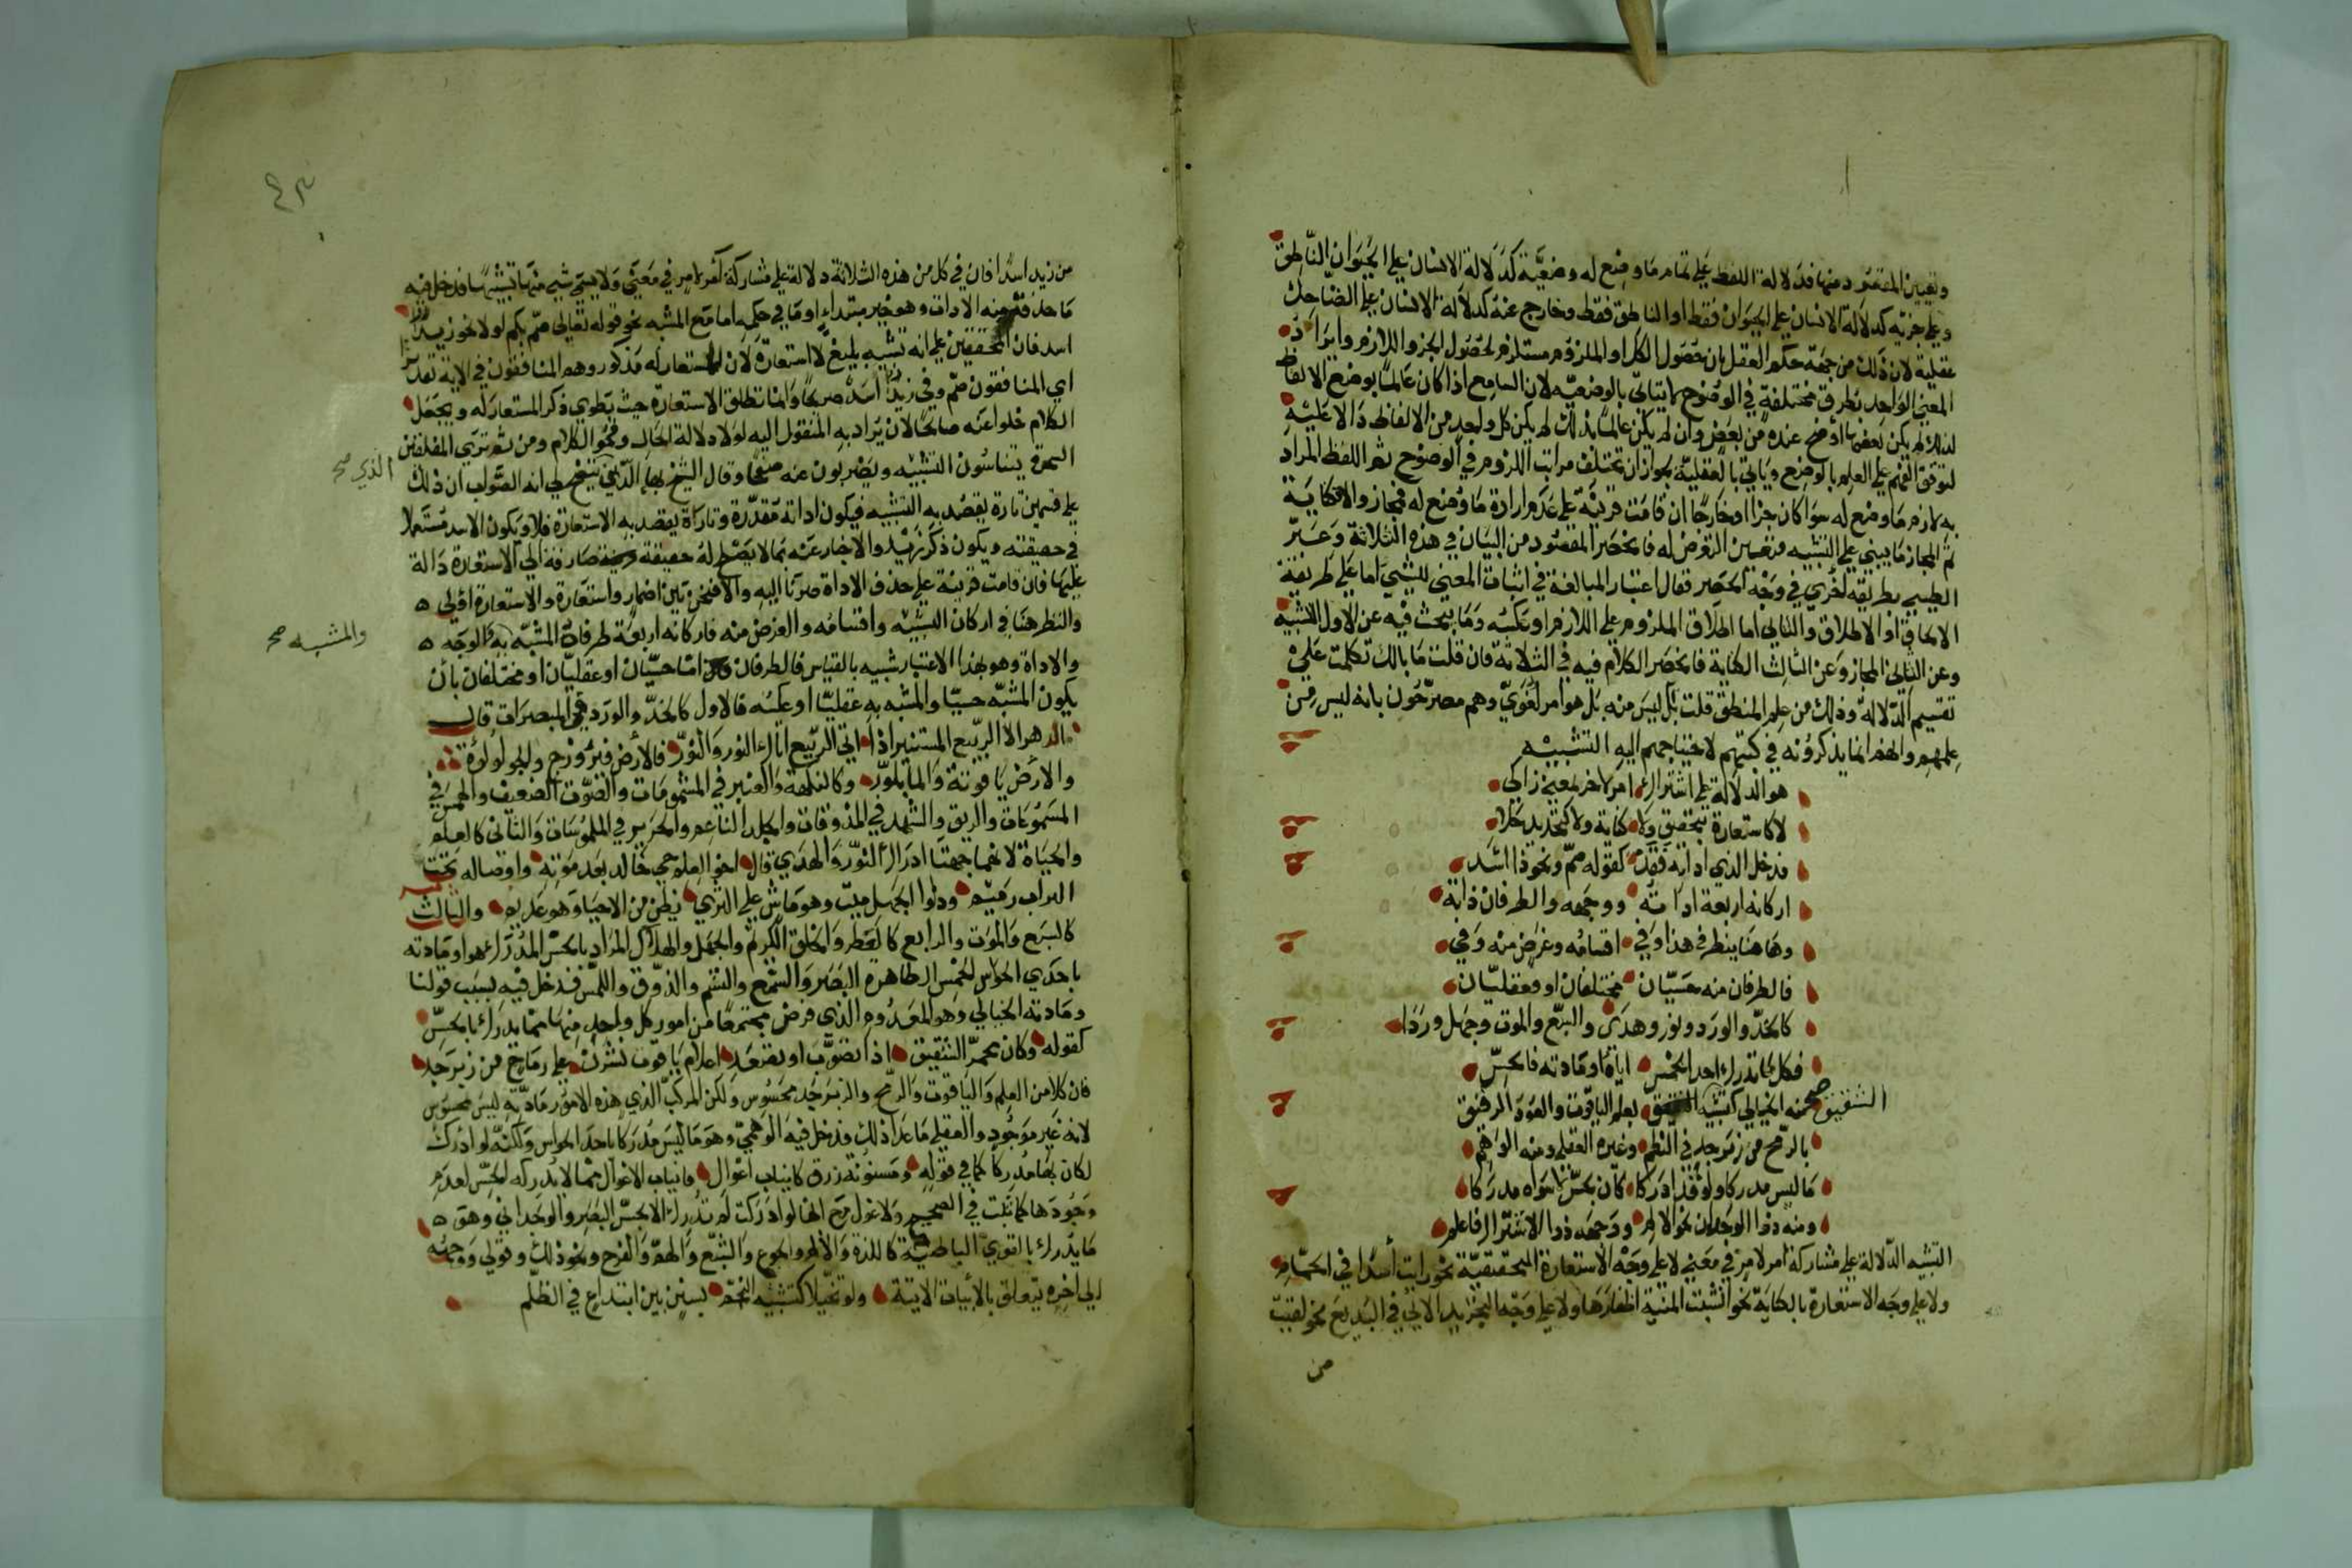 وتعيين المقصود منها فدلالة اللفظ على تمام ما وضع له وضعية كدلالة الانسان على الحيوان الناطق
وعلى جزئه كدلالة الانسان على الحيوان فقط او الناطق فقط وخارج عنه كدلالة الانسان على الضاحك
عقلية لان ذلك من جهة حكم العقل بان حصول الكل او الملزوم مستلزم لحصول الجزو اللازم وايراد
المعنى الواحد بطرق مختلفة في الوضوح لا يتاتى بالوضعيه لان السامع اذا كان عالما بوضع الالفاظ
لذلك لم يكن بعضها اوضح عنده من بعض وان لم يكن عالما بذلك لم يكن كل واحد من الالفاظ دالا عليه
لتوقف الفهم على العلم بالوضع وياتي بالعقلية لجواز ان تختلف مراتب اللزوم في الوضوح ثم اللفظ المراد
به لازم ما وضع له سوا كان جزا او خارجا ان قامت قرينة على عدم ارادة ما وضع له فمجاز والا فكناية
ثم المجاز ما يبنى على التشبيه فتعين التعرض له فانحصر المقصود من البيان في هذه الثلاثة وعبر
الطيبي بطريقه اخرى في وجه الحصر فقال اعتبار المبالغة في اثبات المعنى للشيى اما على طريقة
الالحاق او الاطلاق والثاني اما اطلاق الملزوم على اللازم او عكسه وما يبحث فيه عن الاول التشبيه
وعن الثاني المجاز وعن الثالث الكناية فانحصر الكلام فيه في الثلاثة فان قلت ما بالك تكلمت على
تقسيم الدلالة وذلك من علم المنطق قلت بل ليس منه بل هو امر لغوي وهم مصرحون بانه ليس من
علمهم وانهم انما يذكرونه في كتبهم لاحتياجهم اليه التشبيه
هو الدلالة على اشتراك امر لاخر لمعنى زاكي
لا كاستعارة بتحقيق ولا كناية ولا كتجريد خلا
فدخل الذي اداته فقد كقوله صم ونحو ذا اسد
اركانه اربعة اداته ووجهه والطرفان ذاته
وها هنا ينظر في هذا وفي اقسامه وغرض منه وفي
فالطرفان منه حسيان مختلفان او فعقليان
كالخد والورد ونور وهدى والسبع والموت وجهل وردا
فكل ما تدرك احدى الخمس اياه او مادته فالحس
منه الخيالي كتشبيه الشقيق بعلم الياقوت والعود الرقيق
الشقيق صح
بالرمح من زبرجد في النظم وغيره العقلي ومنه الوهمي
ما ليس مدركا ولو قد ادركا كان بحس لا سواه مدركا
ومنه ذوا الوجدان نحو الالم ووجهه ذوا الاشتراك فاعلم
التشبيه الدلالة على مشاركة امر لامر في معنى لا على وجه الاستعارة التحقيقية نحو رايت اسدا في الحمام
ولا على وجه الاستعارة بالكناية نحو انشبت المنية اظفارها ولا على وجه التجريد الاتي في البديع نحو لقيت
من
٤٣
من زيد اسدا فان في كل من هذه الثلاثة دلالة على مشاركة امر لامر في معنى ولا يسمى شيء منها تشبيها فدخل فيه
ما حذفت منه الادات وهو خبر مبتداء او ما في حكمه اما مع المشبه نحو قوله تعالى صم بكم او لا نحو زيد
اسد فان المحققين على انه تشبيه بليغ لا استعارة لان المستعار له مذكور وهم المنافقون في الاية تقديرا
اي المنافقون صم وفي زيد اسد صريحا وانما تطلق الاستعارة حيث يطوى ذكر المستعار له ويجعل
الكلام خلوا عنه صالحا لان يراد به المنقول اليه لولا دلالة الحال وفحوا الكلام ومن ثم ترى المفلقين
السحرة يتناسون التشبيه ويضربون عنه صفحا وقال الشيخ بها الدين انه الصواب ان ذلك
الذي صح
على قسمين تارة يقصد به التشبيه فيكون اداته مقدرة وتارة يقصد به الاستعارة فلا ويكون الاسد مستعملا
في حقيقته ويكون ذكر زيد والاخبار عنه بما لا يصلح له حقيقة قرينة صارفة الى الاستعارة دالة
عليها فان قامت قرينة على حذف الاداة صرنا اليه والا فنحن بين اضمار واستعارة والاستعارة اولى
والنظر هنا في اركان التشبيه واقسامه والغرض منه فاركانه اربعة طرفاه المشبه به والوجه
والمشبه صح
والاداة وهو بهذا الاعتبار شبيه بالقياس فالطرفان اما حسيان او عقليان او مختلفان بان
يكون المشبه حسيا والمشبه به عقليا او عكسه فالاول كالخد والورد في المبصرات قال
ما الدهر الا الربيع المستنير اذا اتى الربيع اتاك النور والنور فالارض فيروزج والجو لولوة
والارض ياقوتة والما بلور وكالنكهة والعنبر في المشمومات والصوت الضعيف والهمس في
المسموعات والريق والشهد في المذوقات والجلد الناعم والحرير في الملموسات والثاني كالعلم
والحياة لانهما جهتا ادراك النور والهدي قال اخو العلم حي خالد بعد موته واوصاله تحت
التراب رميم وذوا الجهل ميت وهو ماش على الثرى يظن من الاحياء وهو عديم والثالث
كالسبع والموت والرابع كالعطر والخلق الكريم والجهل والهلاك المراد بالحس المدرك هو او مادته
باحدى الحواس الخمس الظاهرة البصر والسمع والشم والذوق واللمس فدخل فيه بسبب قولنا
ومادته الخيالي وهو المعدوم الذي فرض مجتمعا من امور كل واحد منها مما يدرك بالحس
كقوله وكان محمر الشقيق اذا تصوب او تصعد اعلام ياقوت نشرن على رماح من زبرجد
فان كلا من العلم والياقوت والرمح والزبرجد محسوس ولكن المركب الذي هذه الامور مادته ليس محسوس
لانه غير موجود والعقلي ما عدا ذلك فدخل فيه الوهمي وهو ما ليس مدركا باحد الحواس ولكنه لو ادرك
لكان بها مدركا كما في قوله ومسنونة زرق كانياب اغوال فانياب الاغوال مما لا يدركه الحس لعدم
وجودها كما ثبت في الصحيح ولا غول مع انها لو ادركت لم تدرك الا بحس البصر والوجداني وهو
ما يدرك بالقوى الباطنية كاللذة والالم والجوع والشبع والهم والفرح ونحو ذلك وقولي ووجهه
الى اخره يتعلق بالابيات الاتية ولو تخيلا كتشبيه النجم بسنن بين ابتداع في الظلم